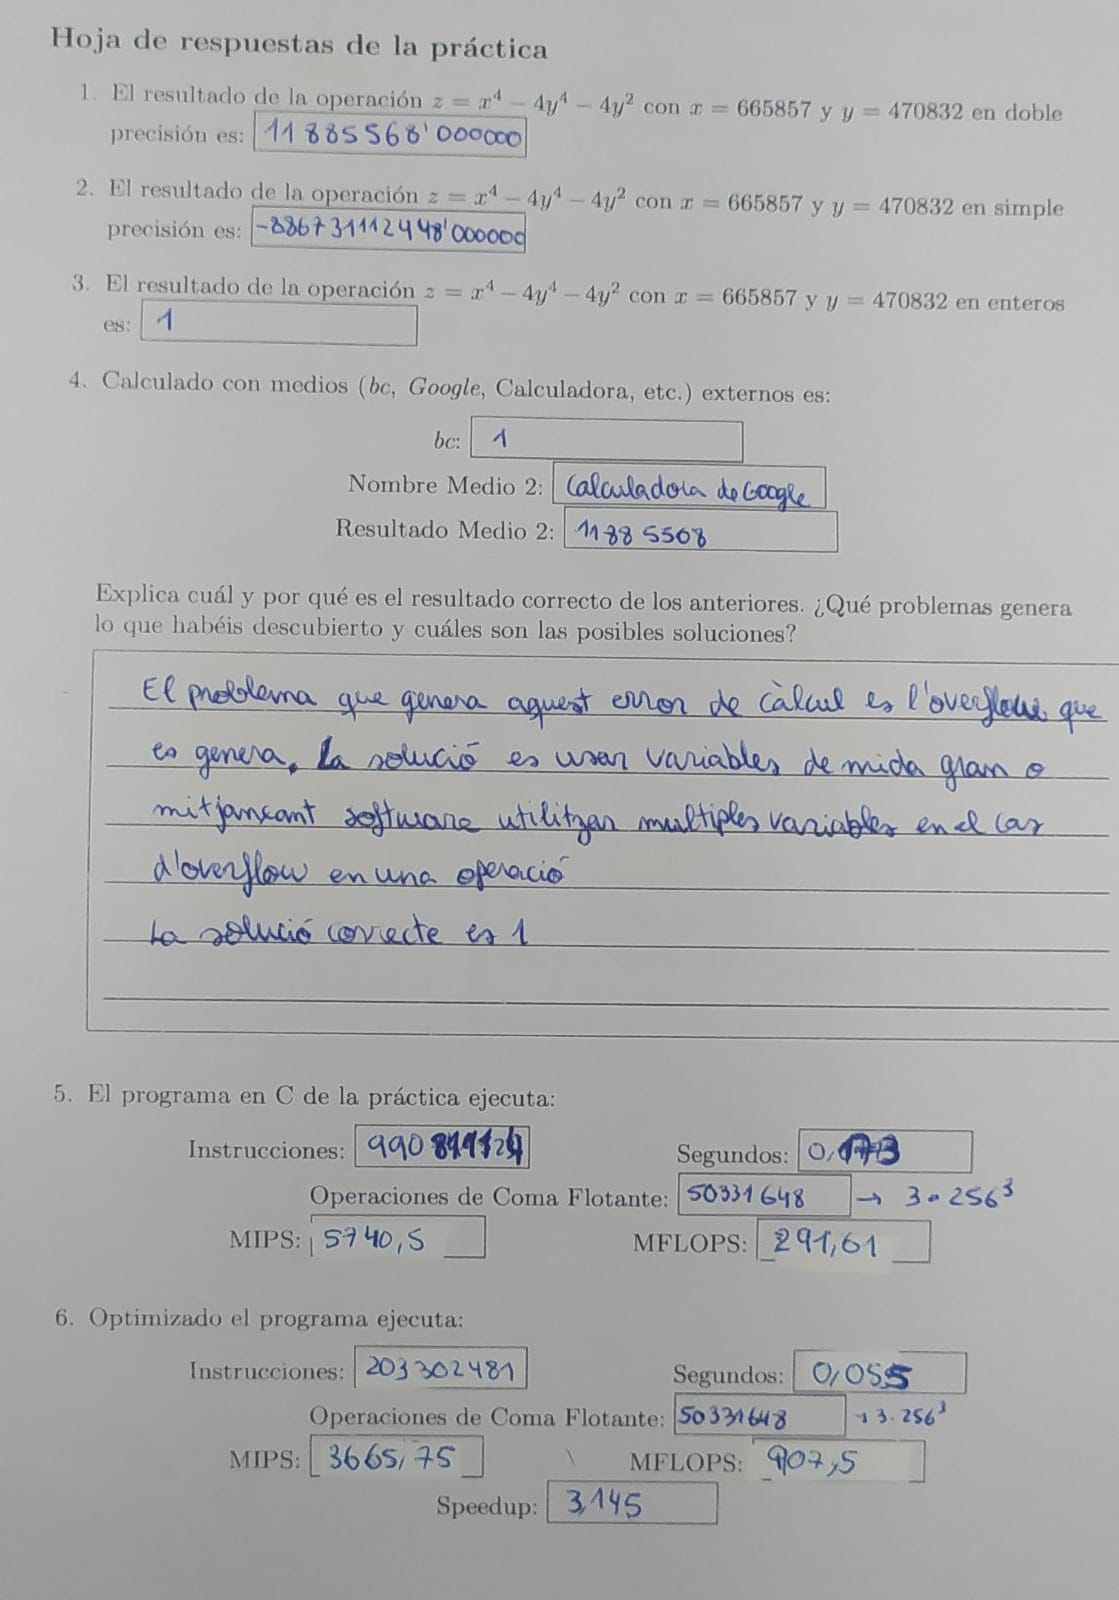 Hoja de respuestas de la práctica
1. El resultado de la operación z = x⁴ − 4y⁴ − 4y² con x = 665857 y y = 470832 en doble
precisión es: 11885568'000000
2. El resultado de la operación z = x⁴ − 4y⁴ − 4y² con x = 665857 y y = 470832 en simple
precisión es: -886731112448'000000
3. El resultado de la operación z = x⁴ − 4y⁴ − 4y² con x = 665857 y y = 470832 en enteros
es: 1
4. Calculado con medios (bc, Google, Calculadora, etc.) externos es:
bc: 1
Nombre Medio 2: Calculadora de Google
Resultado Medio 2: 11885568
Explica cuál y por qué es el resultado correcto de los anteriores. ¿Qué problemas genera
lo que habéis descubierto y cuáles son las posibles soluciones?
El problema que genera aquest error de càlcul es l'overflow que
es genera. La solució es usar variables de mida gran o
mitjançant software utilitzar multiples variables en el cas
d'overflow en una operació
La solució correcte es 1
5. El programa en C de la práctica ejecuta:
Instrucciones: Segundos: 0,173
Operaciones de Coma Flotante: 50331648 → 3·256³
MIPS: 5740,5 MFLOPS: 291,61
6. Optimizado el programa ejecuta:
Instrucciones: 203302481 Segundos: 0,055
Operaciones de Coma Flotante: 50331648 → 3·256³
MIPS: 3665,75 MFLOPS: 907,5
Speedup: 3,145